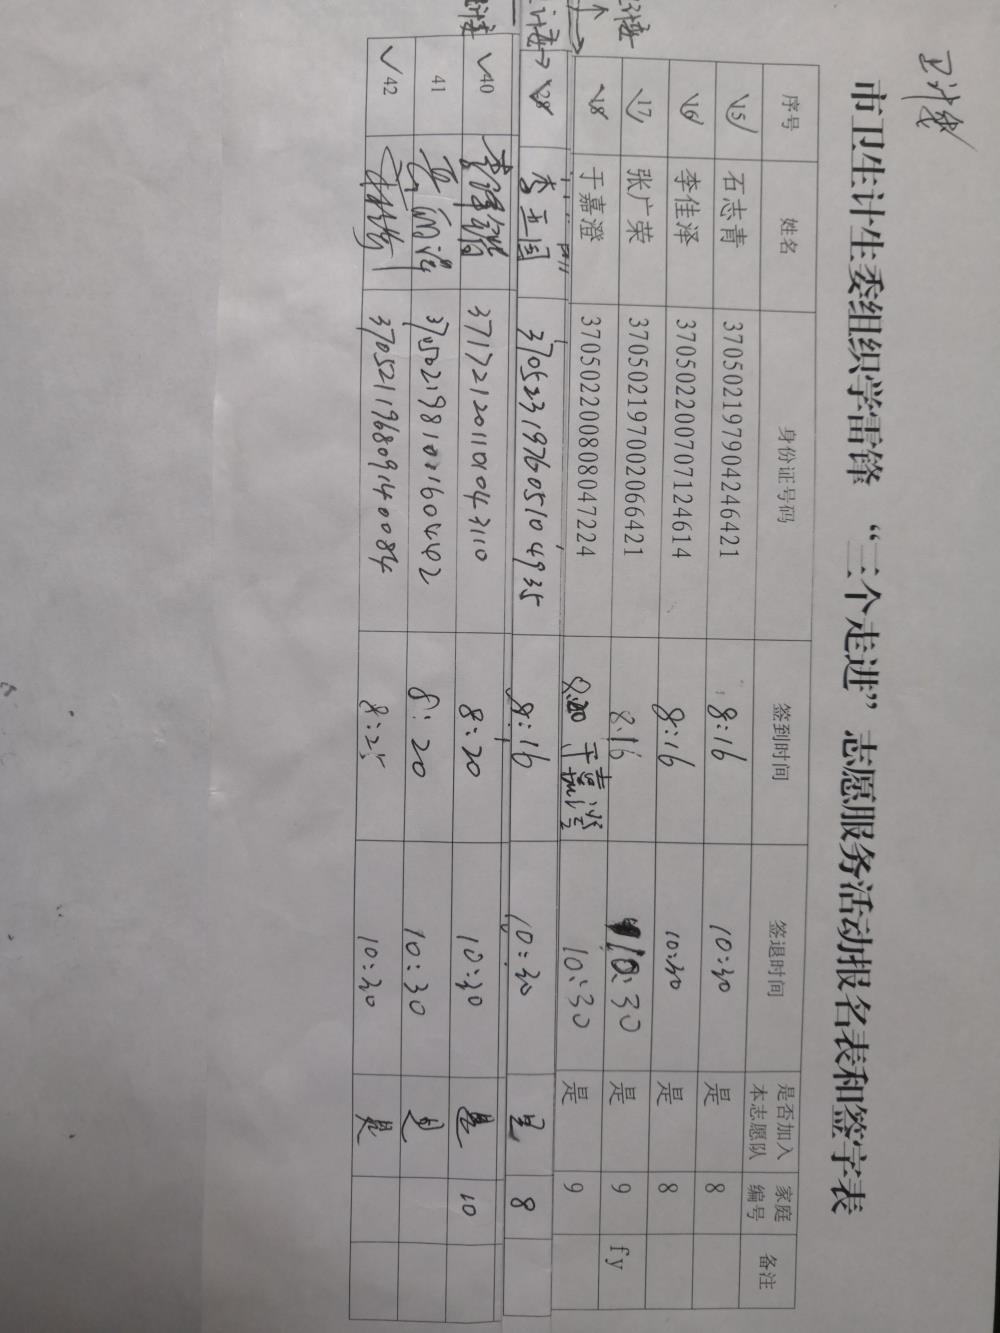 卫计线
市卫生计生委组织学雷锋 “三个走进”志愿服务活动报名表和签字表
序号 姓名 身份证号码 签到时间 签退时间 是否加入本志愿队 家庭编号 备注
15 石志青 370502197904246421 8:16 10:30 是 8
16 李佳泽 370502200707124614 8:16 10:30 是 8
17 张广荣 370502197002066421 8:16 10:30 是 9 fy
18 于嘉澄 370502200808047224 8:20 于嘉澄 10:30 是 9
28 李正国 370523197605104935 8:16 10:30 是 8
40 371721201101043110 8:20 10:30 是 10
41 8:20 10:30 是
42 370521196809140084 8:25 10:30 是